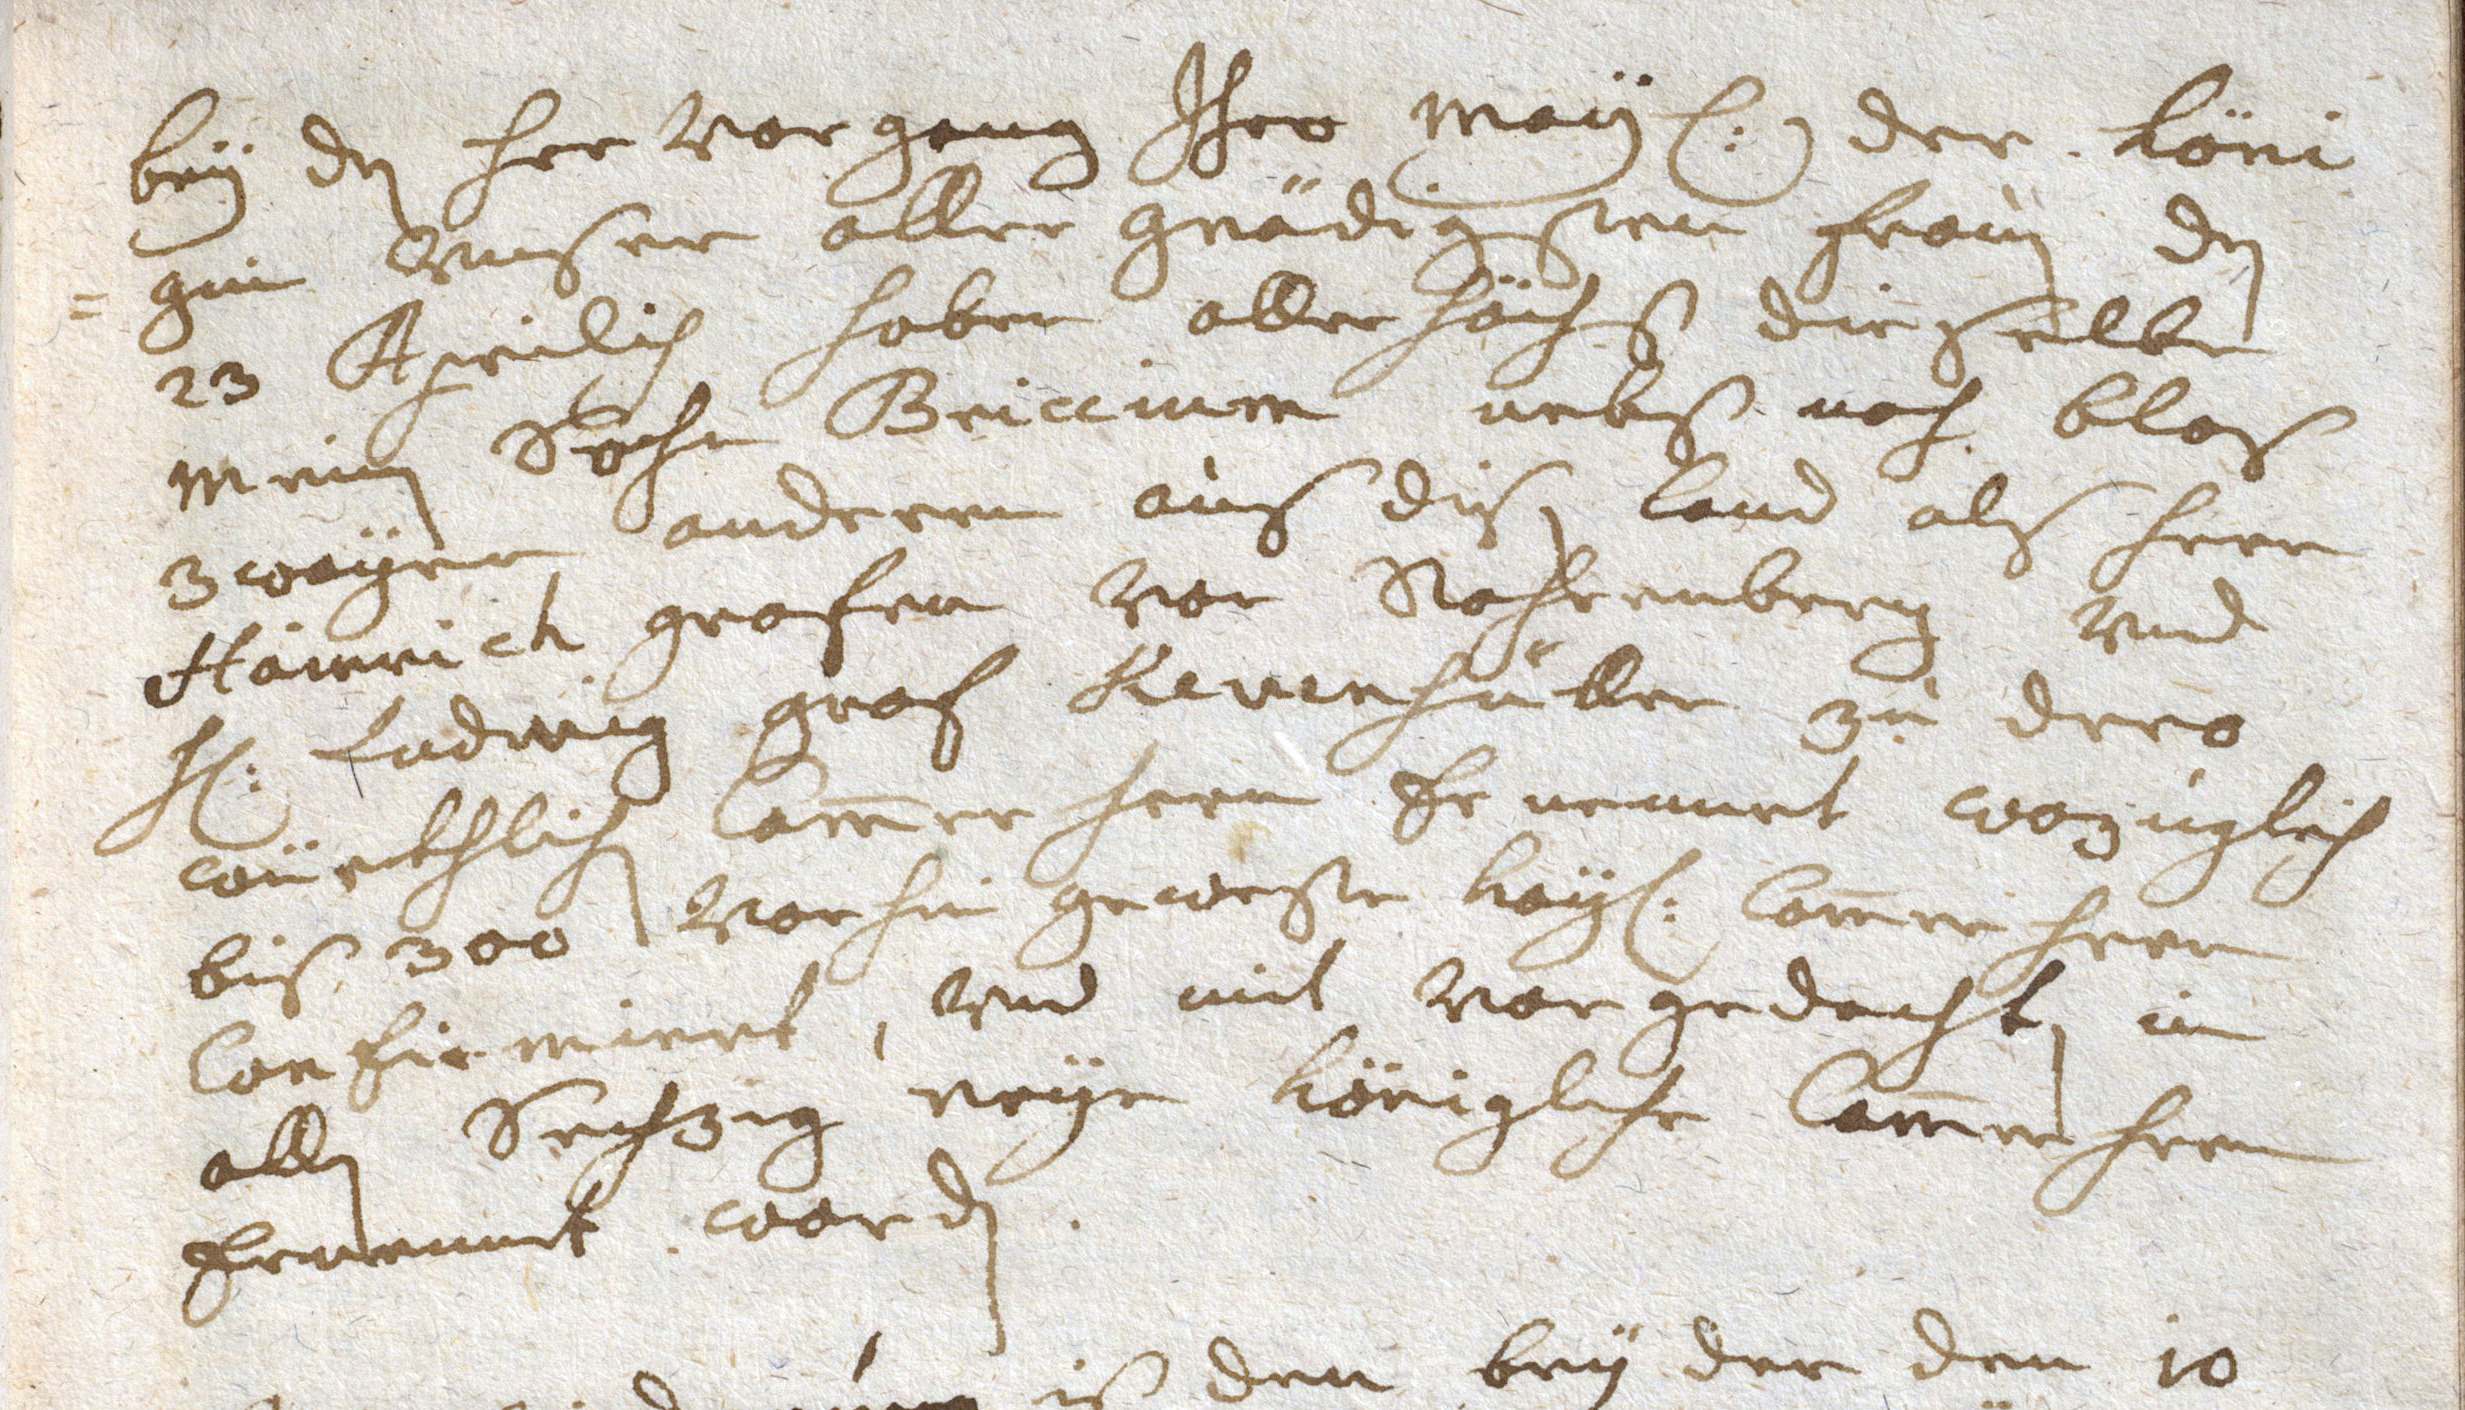 beÿ den her vor gang Ihro maÿ(: der köni
gin vnser aller gnädigsten fraùen den
= 23 Aprilich haben aller höchst dieselbe
meinen Sohn Briccium nebst noch blos
zweÿen anderen aùs disen land als herr
Hainrich grafen von Rosenberg vnd
H(: Ludwig graf Kevenhüller zù dero
würckhlichen Cam̄er herrn Er nennet wozùgleich
bis 300 vorhin geweste kaÿ(: Cam̄er herrn
Confirmiert, vnd mit vor gedachten in
allen Sechzig neÿe königliche Cam̄er herrn
Ernennet worden.
ist den beÿ der den 10